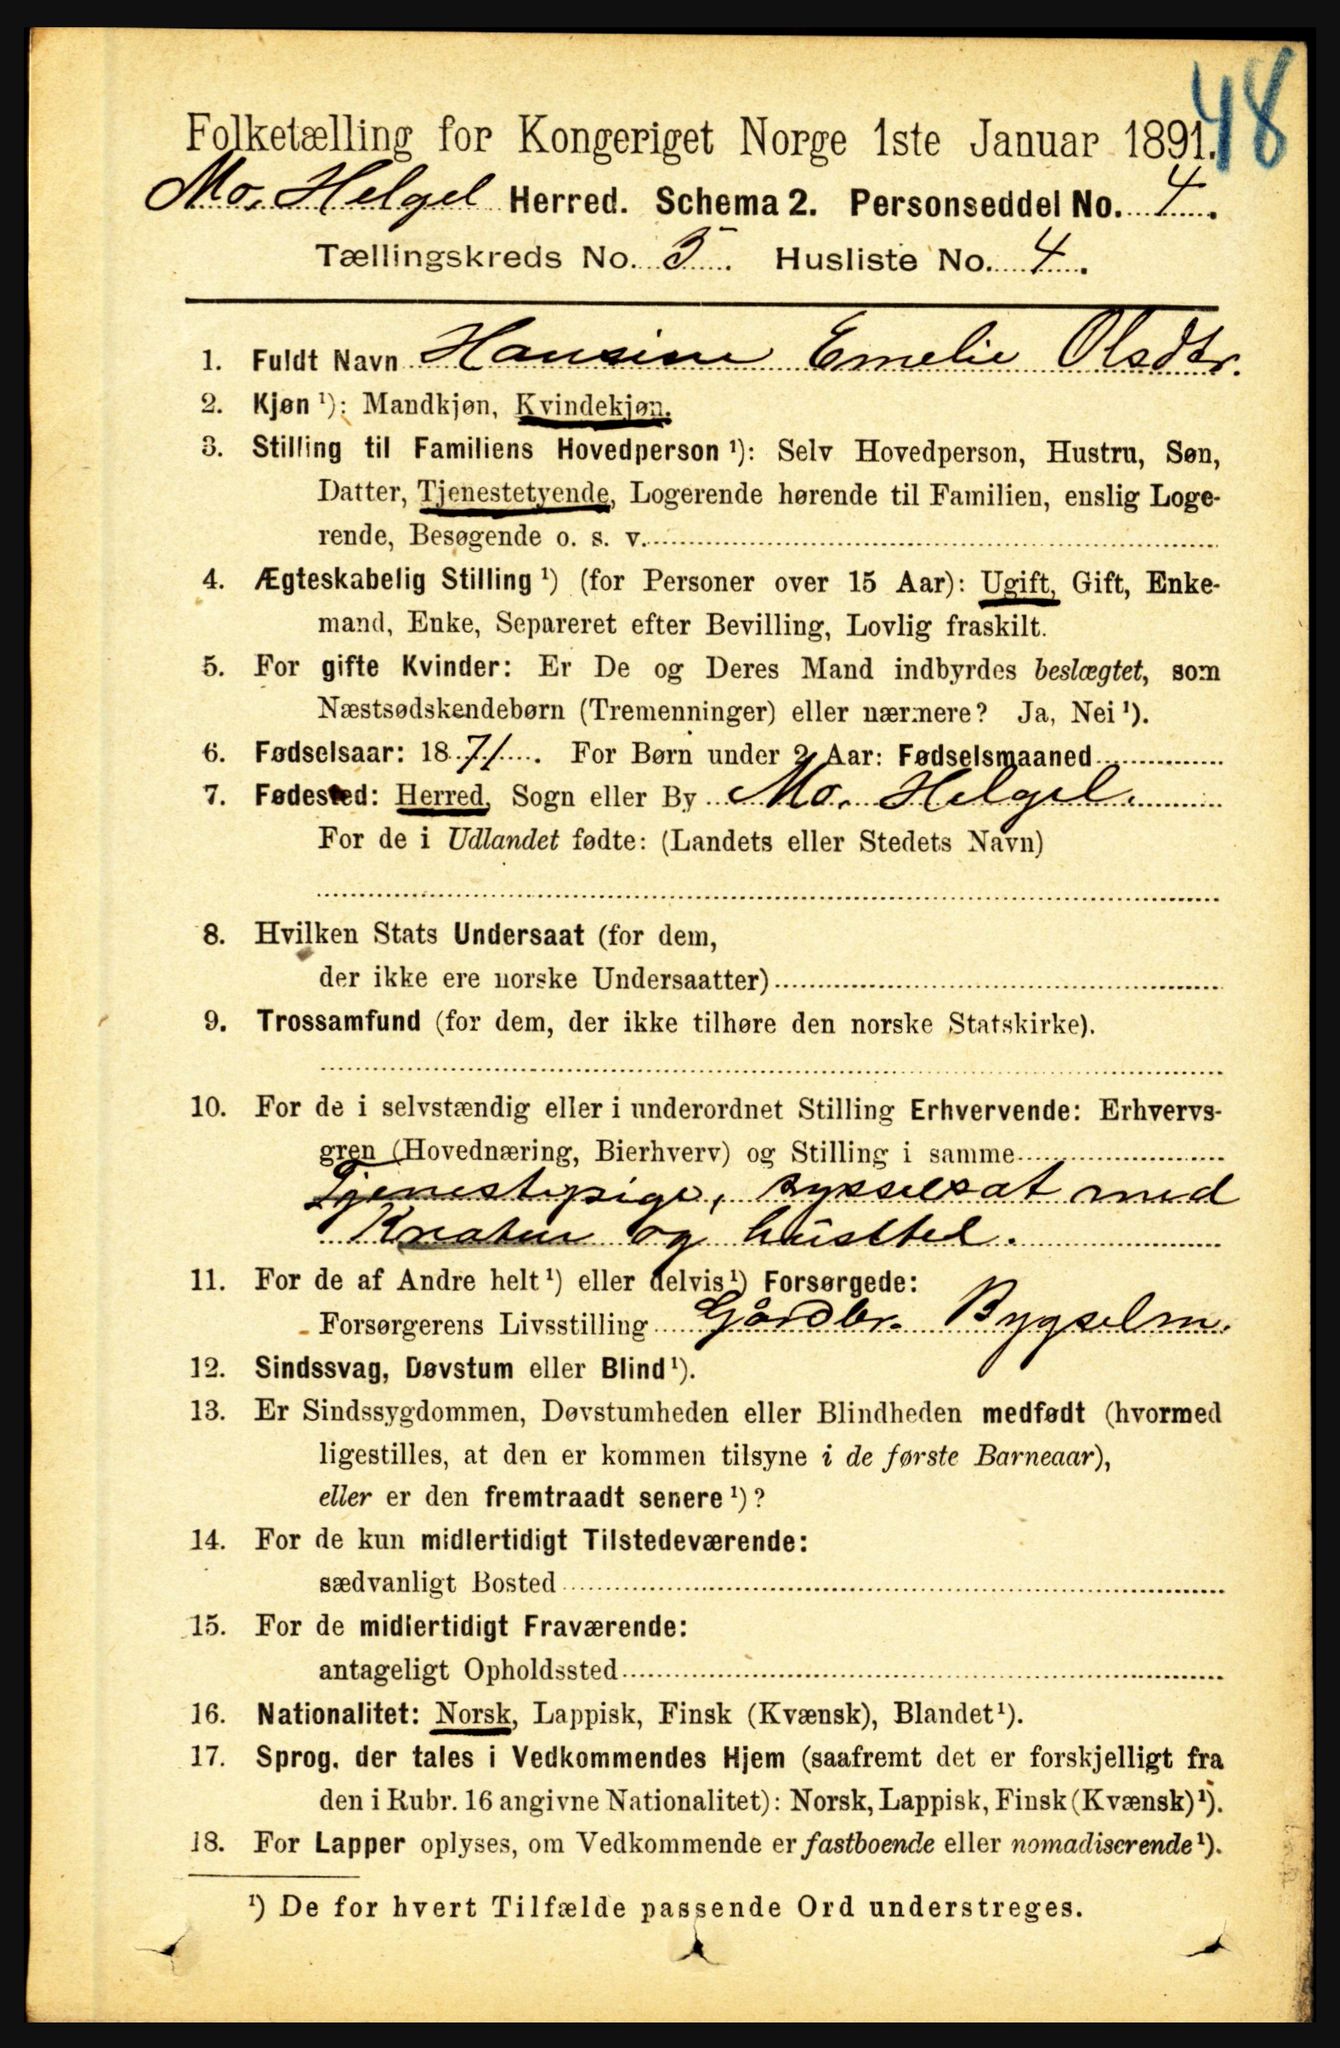 48
Folketælling for Kongeriget Norge 1ste Januar 1891.
Mo, Helgel Herred. Schema 2. Personseddel No. 4.
Tællingskreds No. 5. Husliste No. 4.
1. Fuldt Navn Hansine Emelie Olsdtr.
2. Kjøn ¹): Mandkjøn, Kvindekjøn.
3. Stilling til Familiens Hovedperson ¹): Selv Hovedperson, Hustru, Søn,
Datter, Tjenestetyende, Logerende hørende til Familien, enslig Loge-
rende, Besøgende o. s. v.
4. Ægteskabelig Stilling ¹) (for Personer over 15 Aar): Ugift, Gift, Enke-
mand, Enke, Separeret efter Bevilling, Lovlig fraskilt.
5. For gifte Kvinder: Er De og Deres Mand indbyrdes beslægtet, som
Næstsødskendebørn (Tremenninger) eller nærmere? Ja, Nei ¹).
6. Fødselsaar: 1871. For Børn under 2 Aar: Fødselsmaaned
7. Fødested: Herred, Sogn eller By Mo, Helgel.
For de i Udlandet fødte: (Landets eller Stedets Navn)
8. Hvilken Stats Undersaat (for dem,
der ikke ere norske Undersaatter)
9. Trossamfund (for dem, der ikke tilhøre den norske Statskirke).
10. For de i selvstændig eller i underordnet Stilling Erhvervende: Erhvervs-
gren (Hovednæring, Bierhverv) og Stilling i samme
Tjenestepige, sysselsat med
Kreatur og husstel.
11. For de af Andre helt ¹) eller delvis ¹) Forsørgede:
Forsørgerens Livsstilling Gårdbr. Bygselm.
12. Sindssvag, Døvstum eller Blind ¹).
13. Er Sindssygdommen, Døvstumheden eller Blindheden medfødt (hvormed
ligestilles, at den er kommen tilsyne i de første Barneaar),
eller er den fremtraadt senere ¹)?
14. For de kun midlertidigt Tilstedeværende:
sædvanligt Bosted
15. For de midlertidigt Fraværende:
antageligt Opholdssted
16. Nationalitet: Norsk, Lappisk, Finsk (Kvænsk), Blandet ¹).
17. Sprog, der tales i Vedkommendes Hjem (saafremt det er forskjelligt fra
den i Rubr. 16 angivne Nationalitet): Norsk, Lappisk, Finsk (Kvænsk) ¹).
18. For Lapper oplyses, om Vedkommende er fastboende eller nomadiserende ¹).
¹) De for hvert Tilfælde passende Ord understreges.